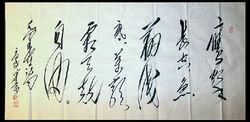 鹰击
长空鱼
翔浅
底万类
霜天竞
自由